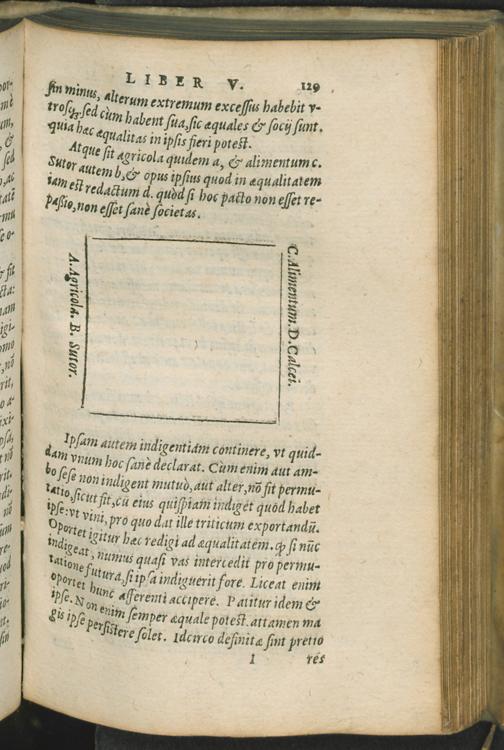 LIBER V. 129
sin minus, alterum extremum excessus habebit v-
trosq;, sed cùm habent sua, sic æquales & socij sunt.
quia hæc æqualitas in ipsis fieri potest.
Atque sit agricola quidem a, & alimentum c.
Sutor autem b, & opus ipsius quod in æqualitatem
iam est redactum d. quòd si hoc pacto non esset re-
passio, non esset sanè societas.
A. Agricola. B. Sutor.
C. Alimentum. D. Calcei.
Ipsam autem indigentiam continere, vt quid-
dam vnum hoc sanè declarat. Cùm enim aut am-
bo sese non indigent mutuò, aut alter, nō fit permu-
tatio, sicut fit, cū eius quispiam indiget quod habet
ipse: vt vini, pro quo dat ille triticum exportandū.
Oportet igitur hæc redigi ad æqualitatem. qp si nūc
indigeat, numus quasi vas intercedit pro permu-
tatione futura, si ipsa indiguerit fore. Liceat enim
oportet hunc afferenti accipere. Patitur idem &
ipse. Non enim semper æquale potest. attamen ma
gis ipse persistere solet. Idcirco definitæ sint pretio
I res